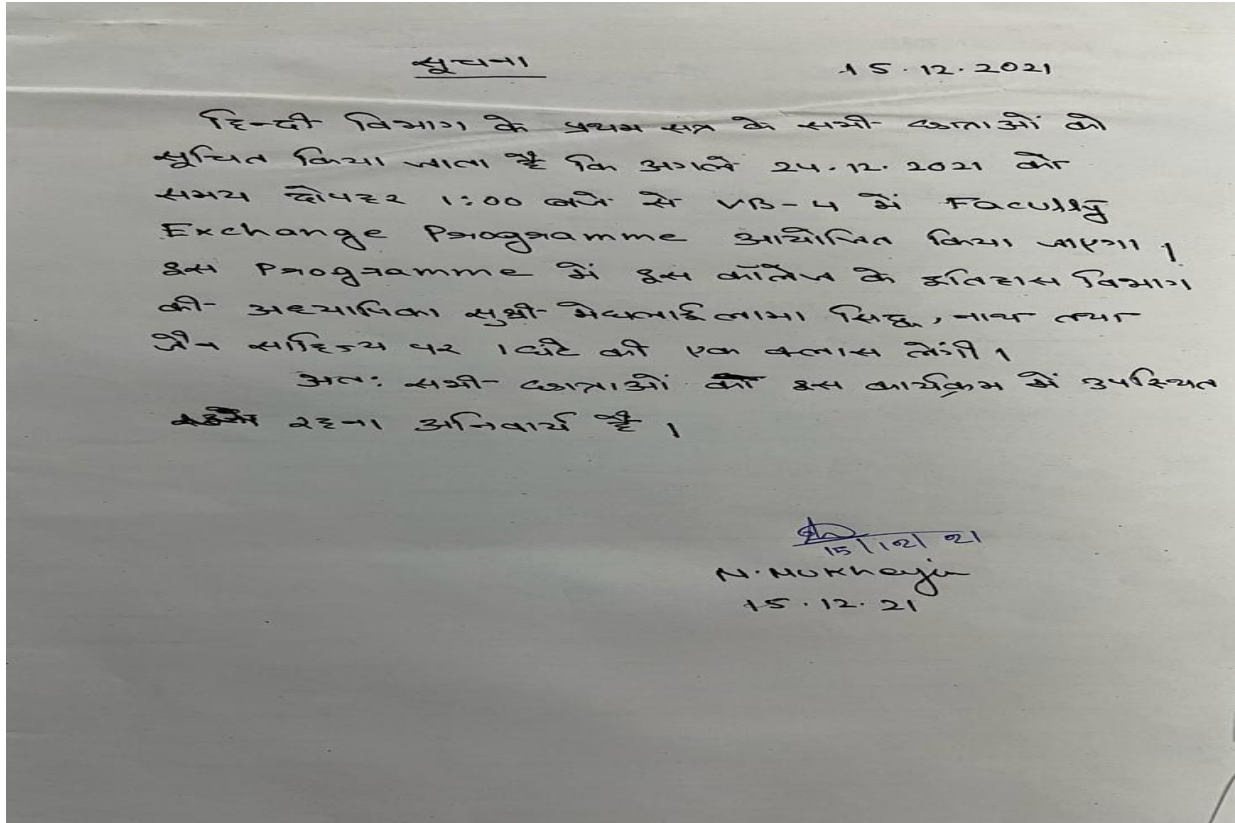 सूचना 15.12.2021
हिन्दी विभाग के प्रथम सत्र के सभी छात्राओं को
सूचित किया जाता है कि अगले 24.12.2021 को
समय दोपहर 1:00 बजे से VB-4 में Faculty
Exchange Programme आयोजित किया जाएगा।
इस Programme में इस कॉलेज के इतिहास विभाग
की अध्यापिका सुश्री लामा सिद्ध, नाथ तथा
जैन साहित्य पर 1 घंटे की एक क्लास लेंगी।
अत: सभी छात्राओं को इस कार्यक्रम में उपस्थित
रहना अनिवार्य है।
15/12/21
N. Mukherjee
15.12.21